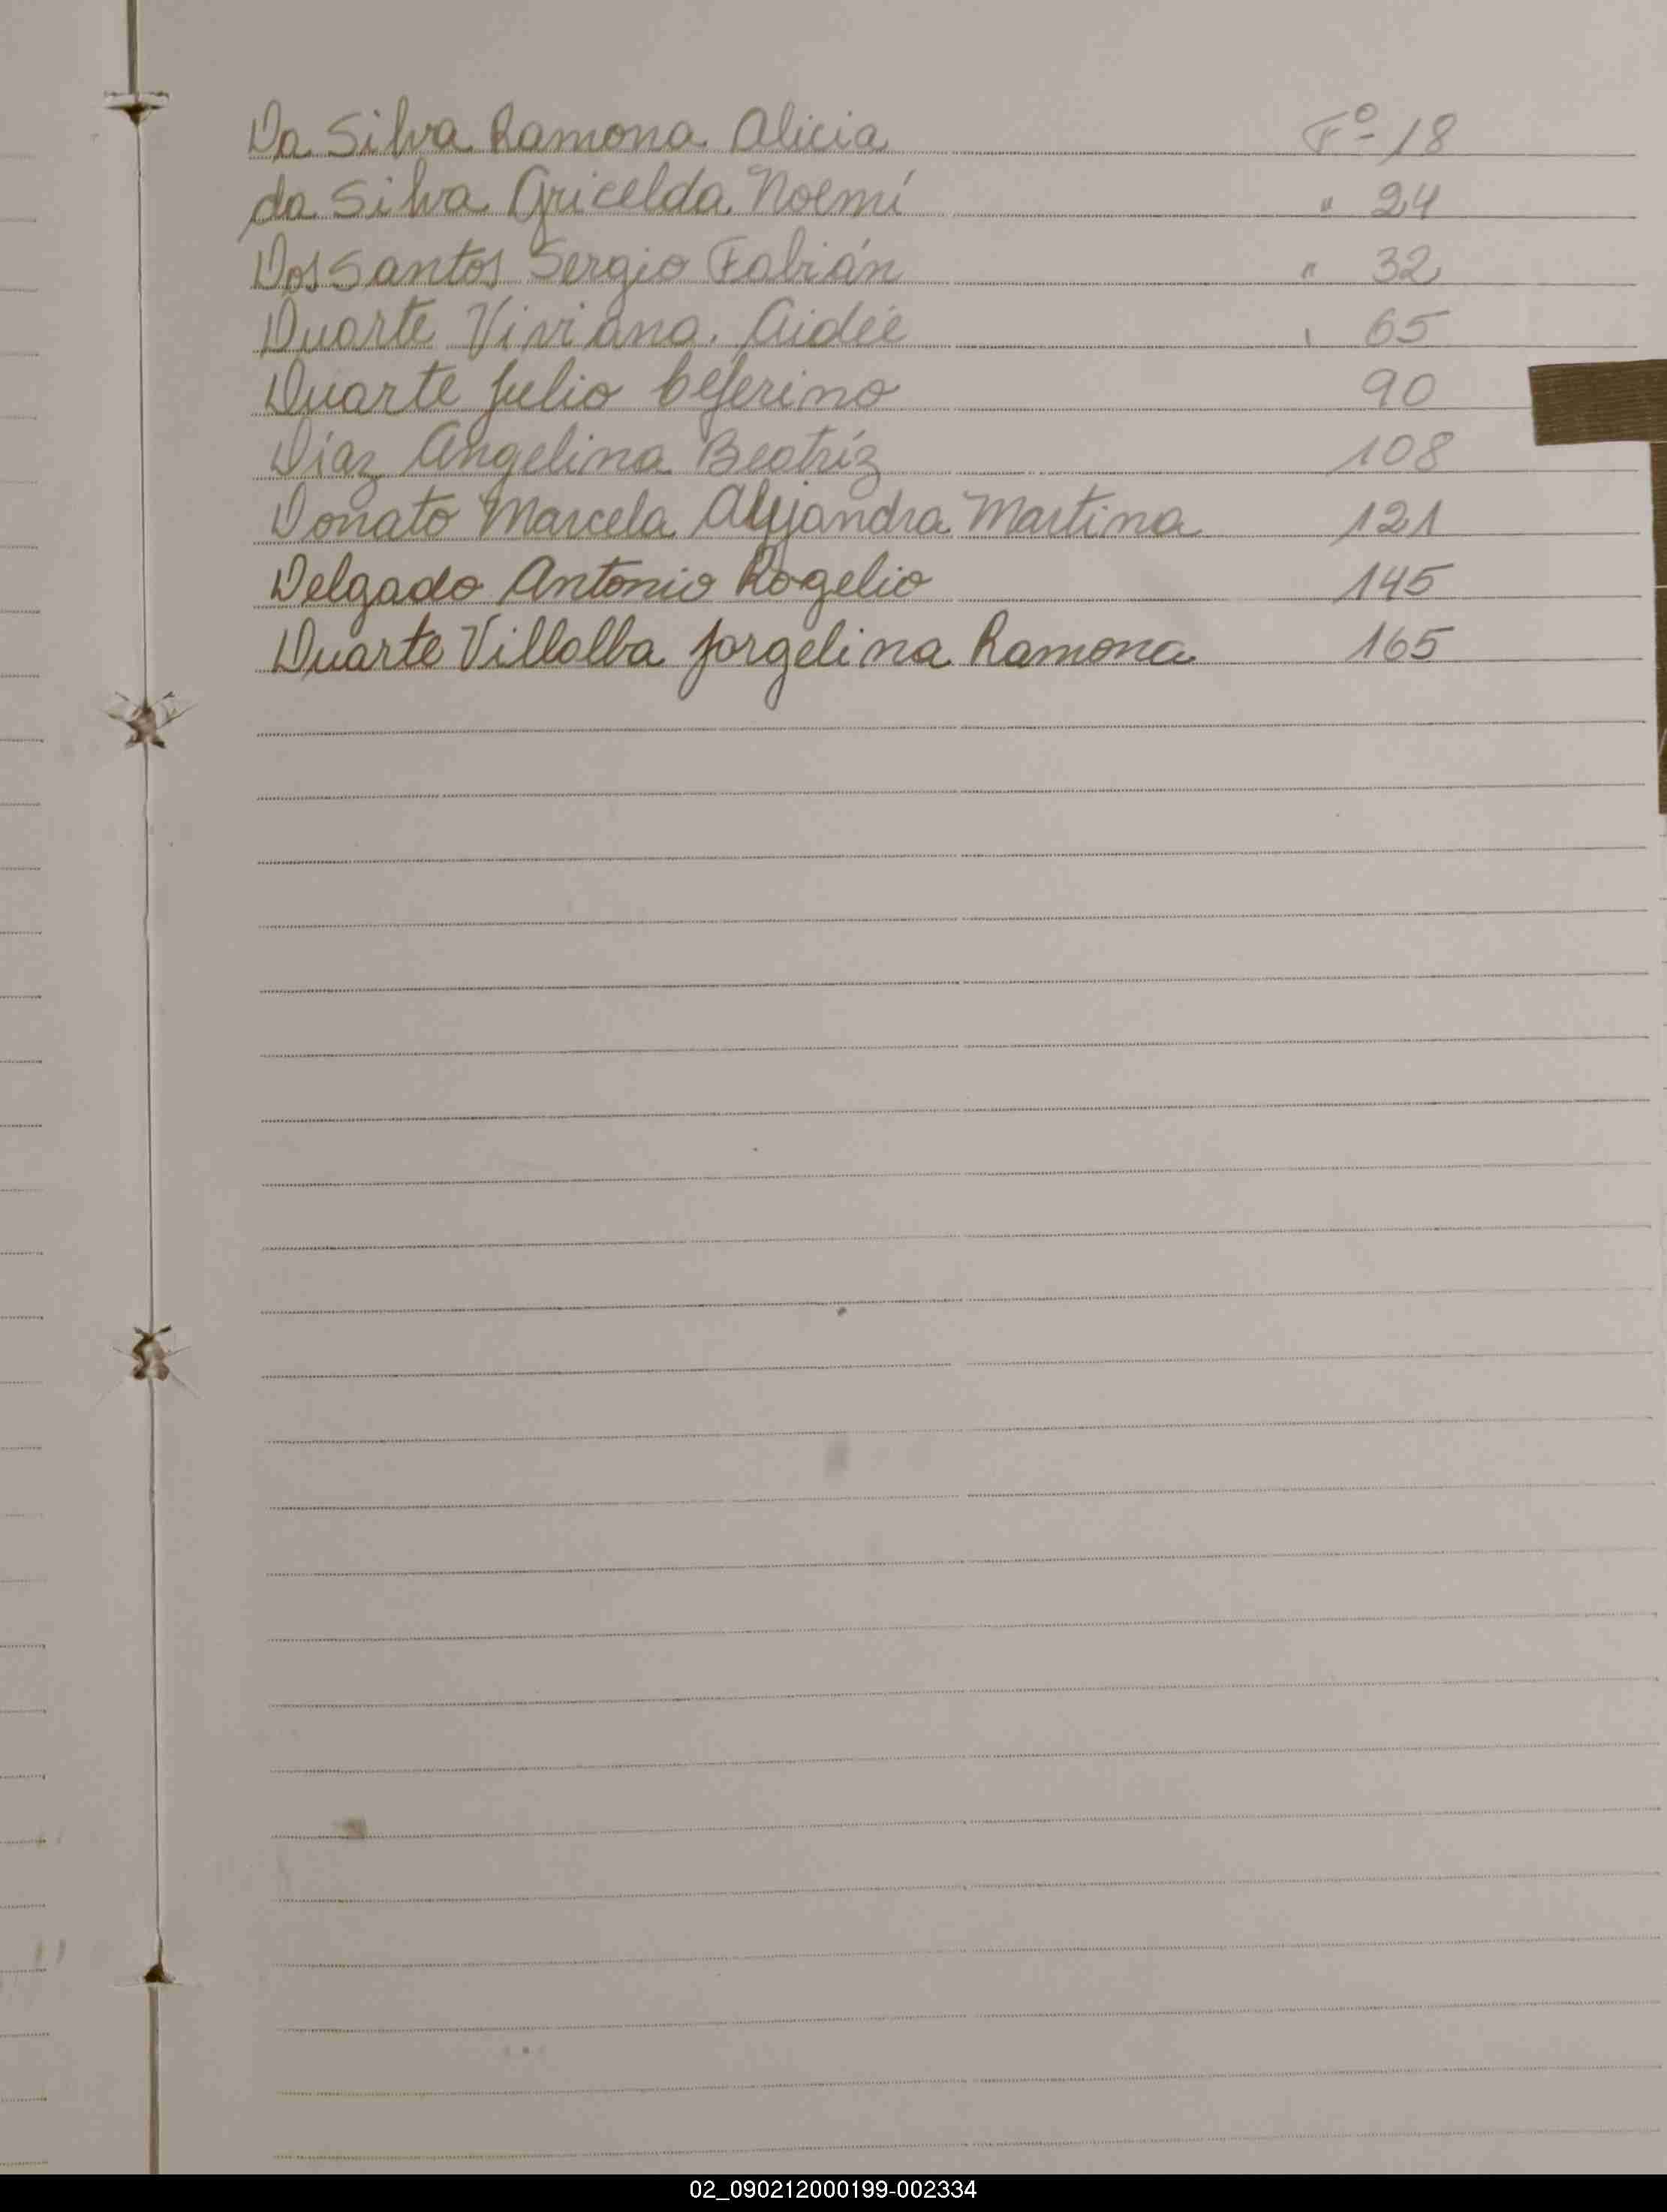 Da Silva Ramona Alicia Fº 18
da Silva Gricelda Noemí " 24
Dos Santos Sergio Fabián " 32
Duarte Viviana Aidée " 65
Duarte Julio Ceferino 90
Díaz Angelina Beatríz 108
Donato Marcela Alejandra Martina 121
Delgado Antonio Rogelio 145
Duarte Villalba Jorgelina Ramona 165
02_090212000199-002334